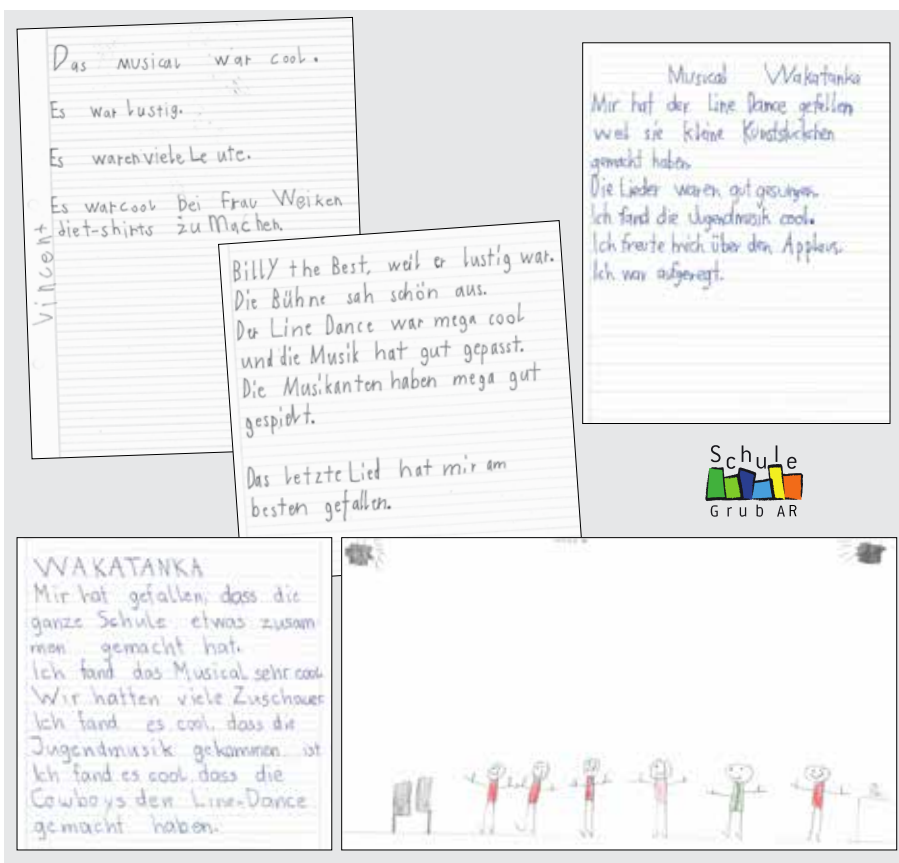 Das Musical war cool.
Es war lustig.
Es waren viele Leute.
Es war cool bei Frau Weiken
die t-shirts zu Machen.
Vincent
Billy the Best, weil er lustig war.
Die Bühne sah schön aus.
Der Line Dance war mega cool
und die Musik hat gut gepasst.
Die Musikanten haben mega gut
gespielt.
Das letzte Lied hat mir am
besten gefallen.
Musical Wakatanka
Mir hat der Line Dance gefallen
weil sie kleine Kunststückchen
gemacht haben.
Die Lieder waren gut gesungen.
Ich fand die Jugendmusik cool.
Ich freute mich über den Applaus.
Ich war aufgeregt.
Schule
Grub AR
WAKATANKA
Mir hat gefallen, dass die
ganze Schule etwas zusam
men gemacht hat.
Ich fand das Musical sehr cool.
Wir hatten viele Zuschauer
Ich fand es cool, dass die
Jugendmusik gekommen ist
Ich fand es cool, dass die
Cowboys den Line-Dance
gemacht haben.